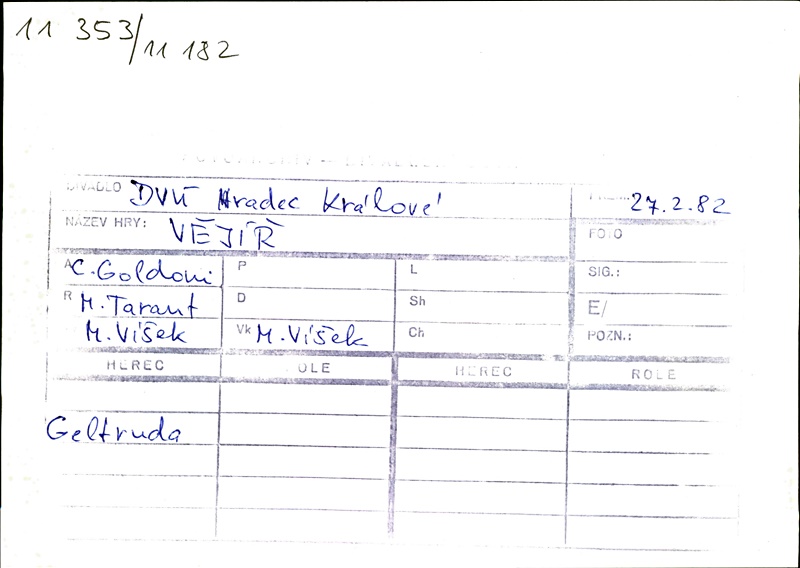 11 353/11 182
DIVADLO DVÚ Hradec Králové 27.2.82
NÁZEV HRY: VĚJÍŘ FOTO
A C. Goldoni P L SIG.:
R M. Tarant D Sh E/
M. Víšek Vk M. Víšek Ch POZN.:
HEREC ROLE HEREC ROLE
Geltruda